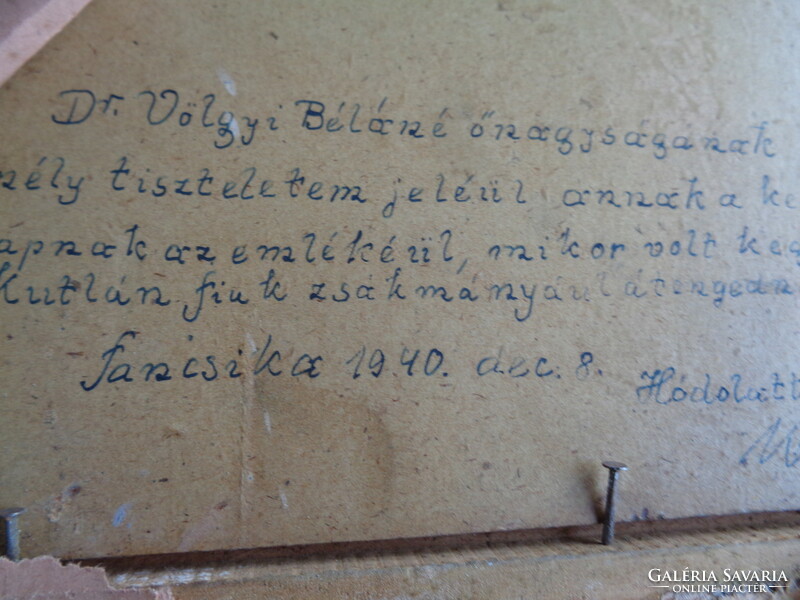 Dr. Völgyi Béláné őnagyságának
mély tiszteletem jeléül annak a ke
apnak az emlékéül, mikor volt keg
Kutlán fiuk zsákmányául átengedn
Fancsika 1940. dec. 8.
Hódolatt
GALÉRIA SAVARIA
ONLINE PIACTÉR